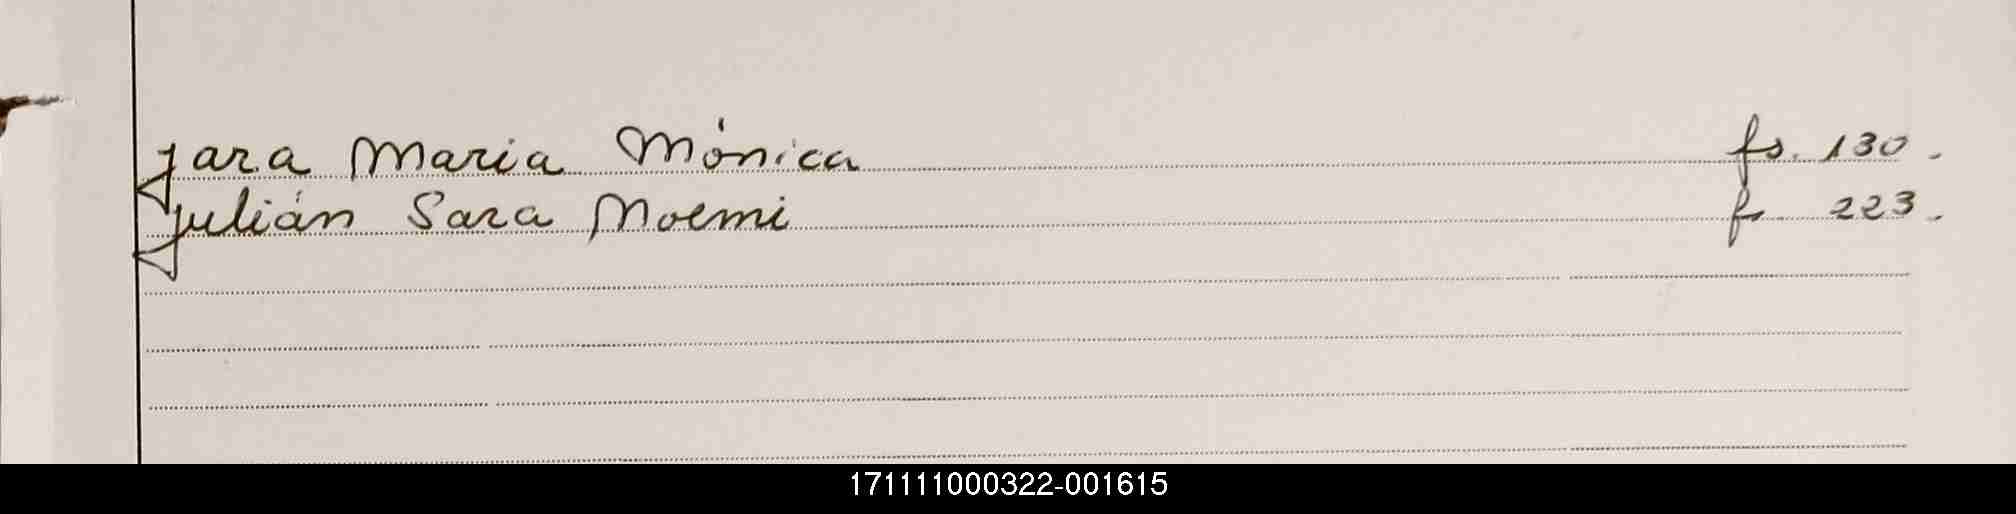 Jara Maria Mónica fs. 130.
Julián Sara Noemi fs 223.
171111000322-001615